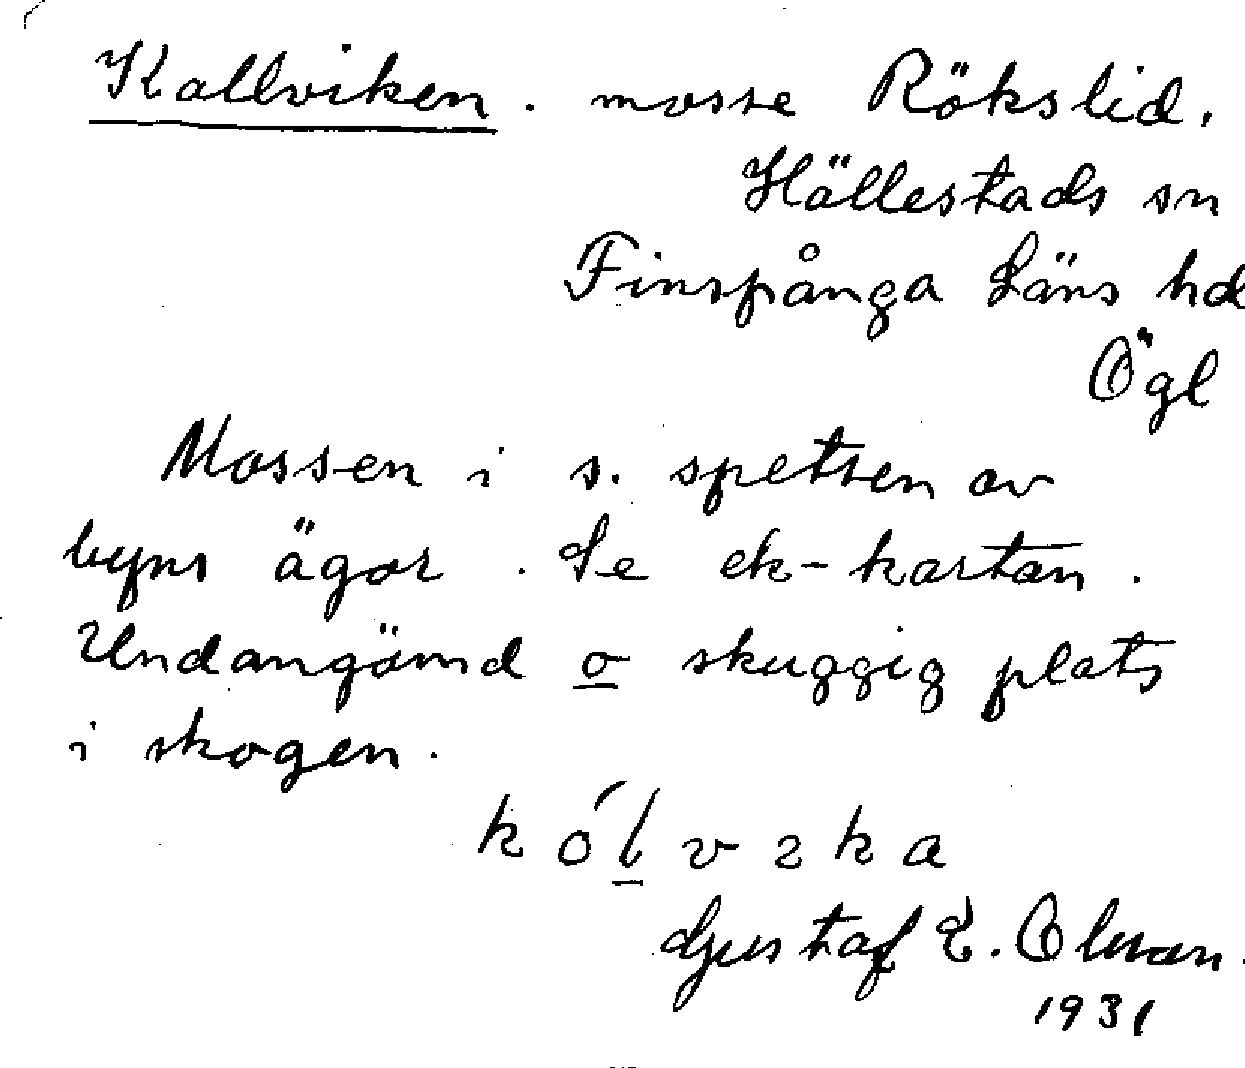 Kallviken. mosse Rökslid.
Hällestads sn
Finspånga Läns hd
Ögl
Mossen i s. spetsen av
byns ägor. Se ek-kartan.
Undangömd o skuggig plats
i skogen.
kólvzka
Gustaf E. Olsson.
1931